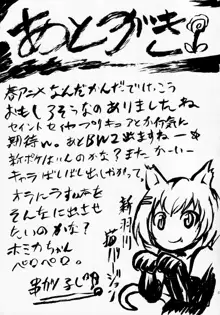 あとがき
春アニメなんだかんだでけっこう
おもしろそうなのありましたね
セイントセイヤやプリキュアとか行氷に
期待w。あとBW2出ますねー☆
新ポケはいんのかな?また かーいー
キャラばしばし出しやがって
オラにうすいのを
そんなに出させ
たいのかな?
ホミカちゃん
ペロペロ。
串かり
新羽川